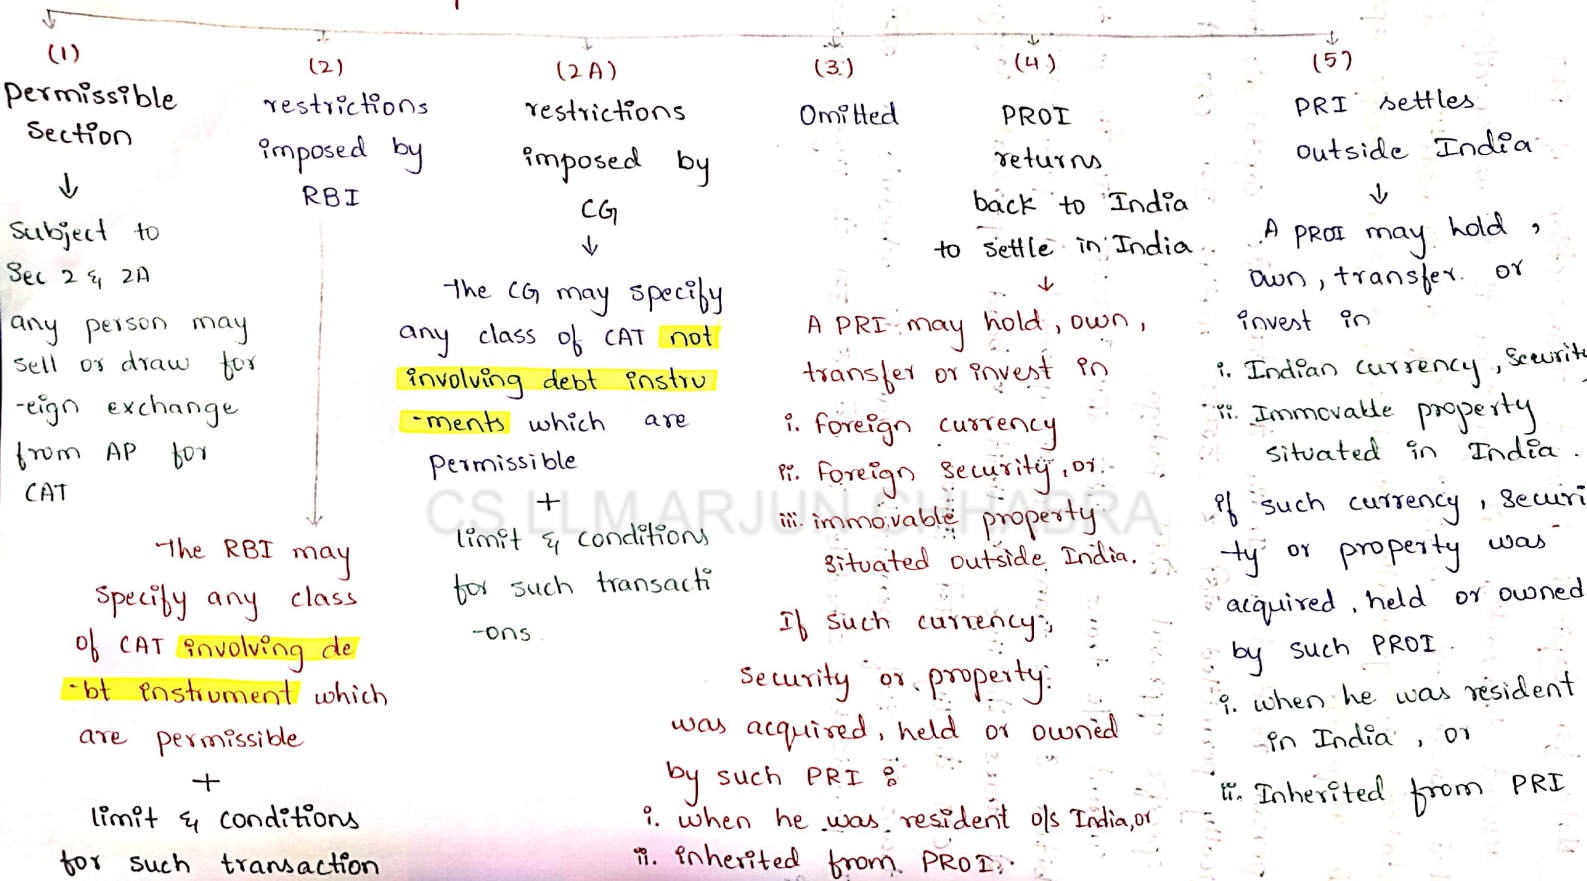 (1)
Permissible
Section
Subject to
Sec 2 & 2A
any person may
sell or draw for
-eign exchange
from AP for
CAT
(2)
restrictions
imposed by
RBI
The RBI may
specify any class
of CAT involving de
-bt instrument which
are permissible
+
limit & conditions
for such transaction
(2A)
restrictions
imposed by
CG
The CG may specify
any class of CAT not
involving debt instru
-ments which are
permissible
+
limit & conditions
for such transacti
-ons
(3)
Omitted
(4)
PROI
returns
back to India
to settle in India
A PRI may hold, own,
transfer or invest in
i. foreign currency
ii. foreign security, or
iii. immovable property
situated outside India.
If such currency,
security or property
was acquired, held or owned
by such PRI :
i. when he was resident o/s India, or
ii. inherited from PROI.
(5)
PRI settles
outside India
A PROI may hold,
own, transfer or
invest in
i. Indian currency, Securit
ii. Immovable property
situated in India.
if such currency, securi
-ty or property was
acquired, held or owned
by such PROI.
i. when he was resident
in India, or
ii. Inherited from PRI
CS LLM ARJUN CHHABRA